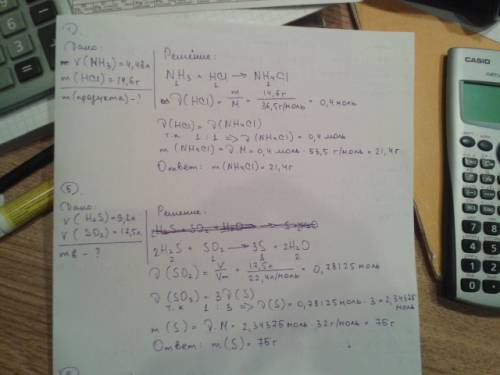 1).
Дано:
V(NH3)=4,48л
m(HCl)=14,6г
m(продукта)-?
Решение:
NH3 + HCl → NH4Cl
1 1 1
ν(HCl) = m/M = 14,6г/36,5г/моль = 0,4 моль
ν(HCl) = ν(NH4Cl)
т.к 1:1 => ν(NH4Cl) = 0,4 моль
m(NH4Cl) = ν·M = 0,4 моль · 53,5 г/моль = 21,4г
Ответ: m(NH4Cl) = 21,4г
Дано:
V(SO2) = 17,5л
- ?
Решение:
2H2S + SO2 → 3S + 2H2O
2 1 3 2
ν(SO2) = V/Vm = 17,5л/22,4л/моль = 0,78125 моль
ν(SO2) = 3ν(S)
т.к 1:3 => ν(S) = 0,78125 моль · 3 = 2,34375 моль
m(S) = ν·M = 2,34375 моль · 32г/моль = 75г
Ответ: m(S) = 75г
CASIO